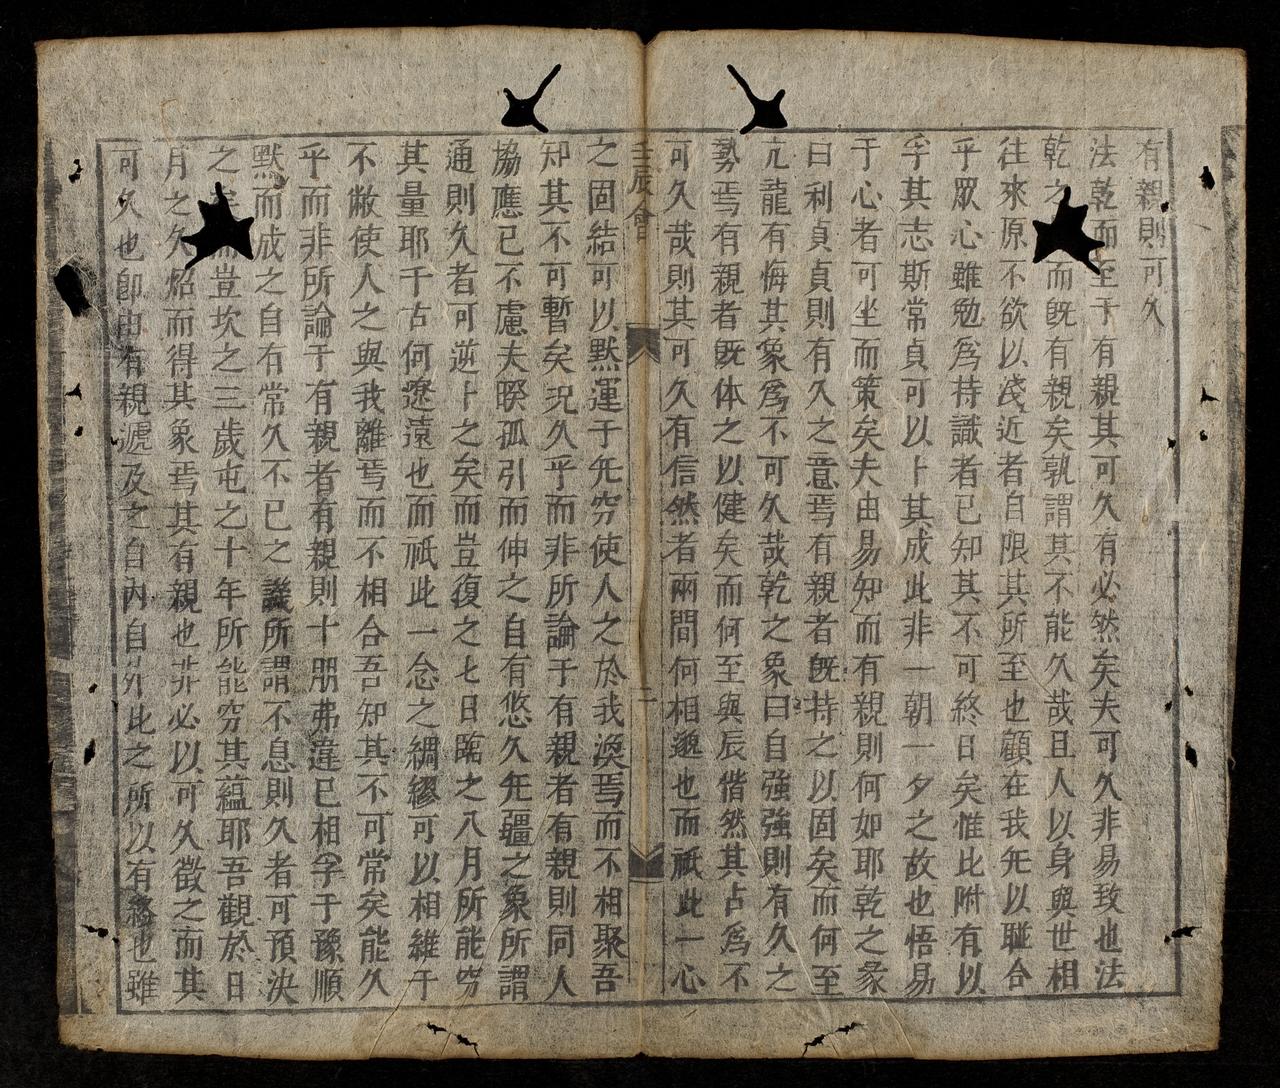 有親則可久
法乾而至于有親其可久有必然矣夫可久非易致也法
乾之而旣有親矣孰謂其不能久哉且人以身與世相
往來原不欲以淺近者自限其所至也顧在我旡以聯合
乎眾心雖勉爲持識者已知其不可終日矣惟比附有以
孚其志斯常貞可以卜其成此非一朝一夕之故也悟易
于心者可坐而策矣夫由易知而有親則何如耶乾之彖
曰利貞貞則有久之意焉有親者旣持之以固矣而何至
亢龍有悔其象爲不可久哉乾之象曰自強強則有久之
勢焉有親者旣体之以健矣而何至與辰偕然其占爲不
可久哉則其可久有信然者兩間何相邈也而祇此一心
壬辰會
二
之固結可以默運于旡穷使人之於我渙焉而不相聚吾
知其不可暫矣况久乎而非所論于有親者有親則同人
協應已不慮夫睽孤引而伸之自有悠久旡疆之象所謂
通則久者可逆卜之矣而豈復之七日臨之八月所能穷
其量耶千古何遼遠也而祇此一念之綢繆可以相維于
不敝使人之與我離焉而不相合吾知其不可常矣能久
乎而非所論于有親者有親則十朋弗違已相孚于豫順
默而成之自有常久不已之議所謂不息則久者可預決
之而豈坎之三歲屯之十年所能穷其蘊耶吾觀於日
月之久炤而得其象焉其有親也非必以可久徵之而其
可久也卽由有親遞及之自內自外比之所以有終也雖